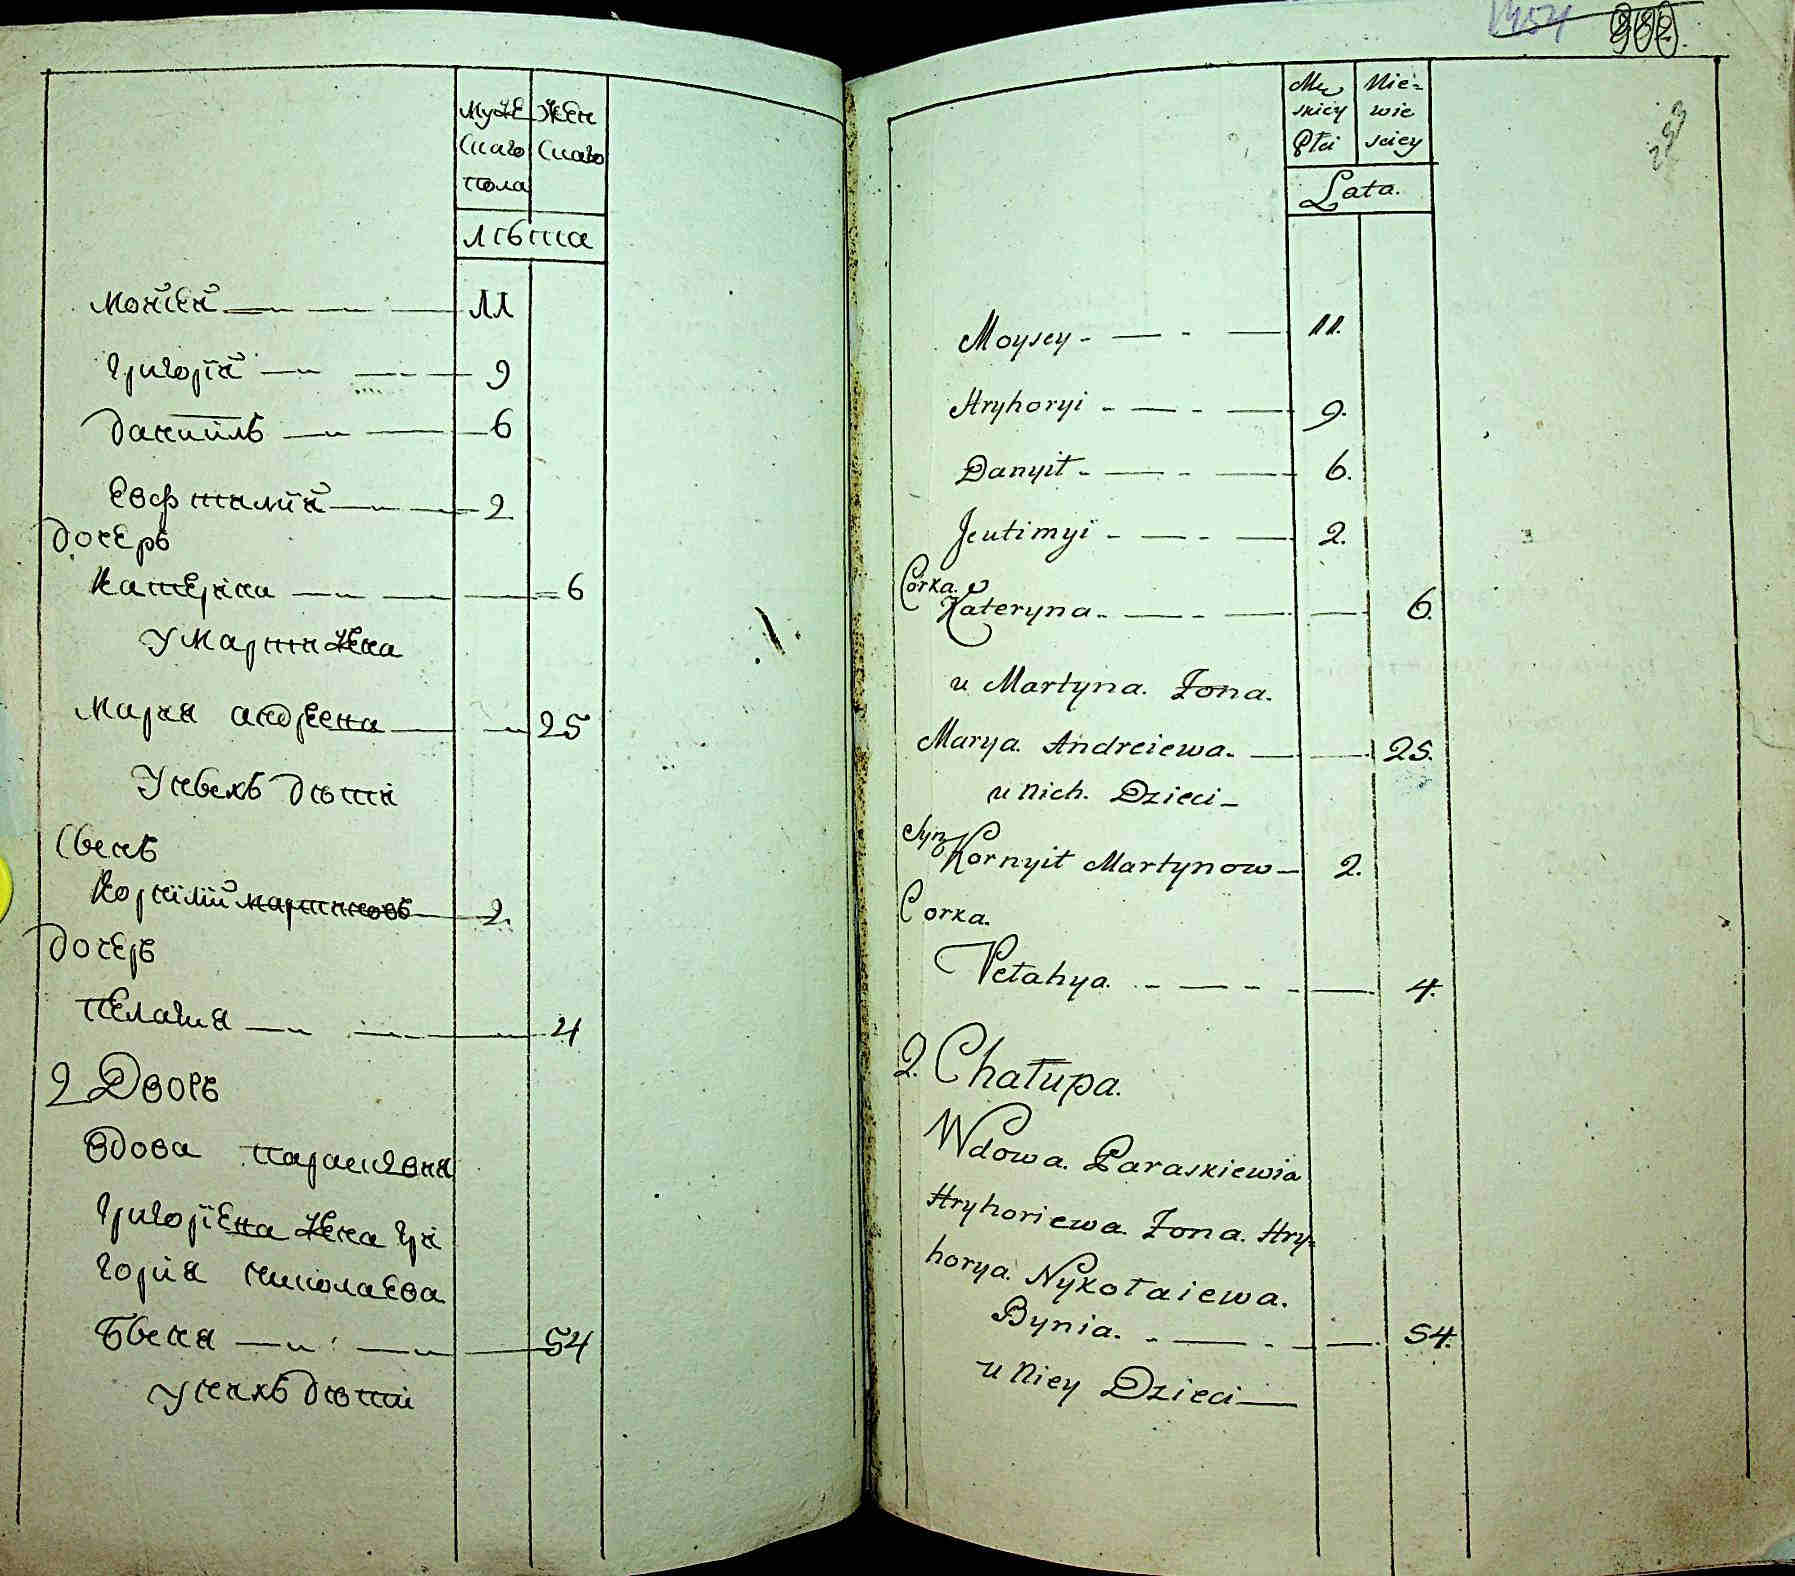 Муже Жен
скаго скаго
пола
лѣта
Мойсей 11
Григорій 9
Даниилъ 6
Евфтимій 2
дочерь
Катерина 6
У Мартина жена
Мария андреева 25
У нбвхъ дѣти
Сынъ
Корнілій мартиновъ 2.
дочерь
Пелагия 4
2 Дворъ
Вдова Параскевия
Григорієва жена Гри
гория николаева
Быня 54
у неяхъ дѣти
1454 902.
Mę Nie=
skiey wie
Płci sciey
Lata.
299
Moysey - 11.
Hryhoryi - 9.
Danyił - 6.
Jeutimyi - 2.
Corka.
Kateryna. 6.
u Martyna. Żona.
Marya. Andreiewa. 25.
u Nich. Dzieci
Syn
Kornyił Martynow 2.
Corka.
Pełahya. 4.
2. Chałupa.
Wdowa. Paraskiewia
Hryhoriewa Żona. Hry=
horya. Nykołaiewa.
Bynia. 54.
u Niey Dzieci